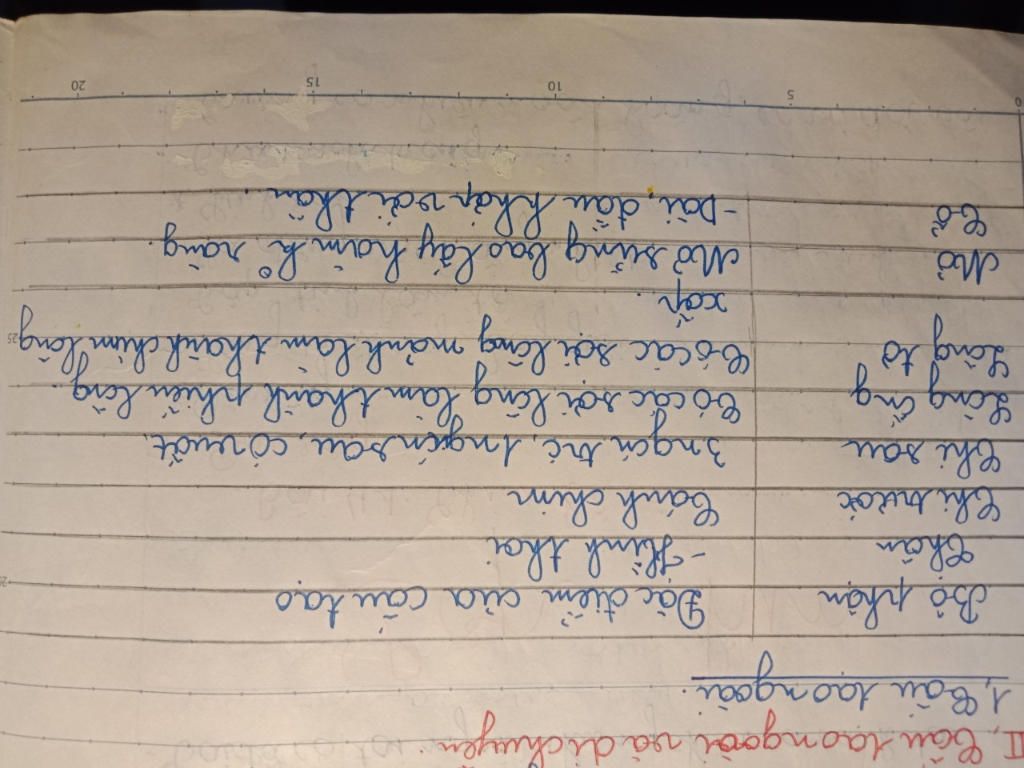 II, Cấu tạo ngoài và di chuyển.
1, Cấu tạo ngoài.
Bộ phận Đặc điểm của cấu tạo
Thân - Hình thoi
Chi trước Cánh chim
Chi sau 3 ngón trước, 1 ngón sau, có vuốt.
Lông ống Có các sợi lông làm thành phiến lông.
Lông tơ Có các sợi lông mảnh làm thành chùm lông
xốp.
Mỏ Mỏ sừng bao lấy hàm k° răng.
Cổ - Dài, đầu khớp với thân.
0 5 10 15 20
20
25